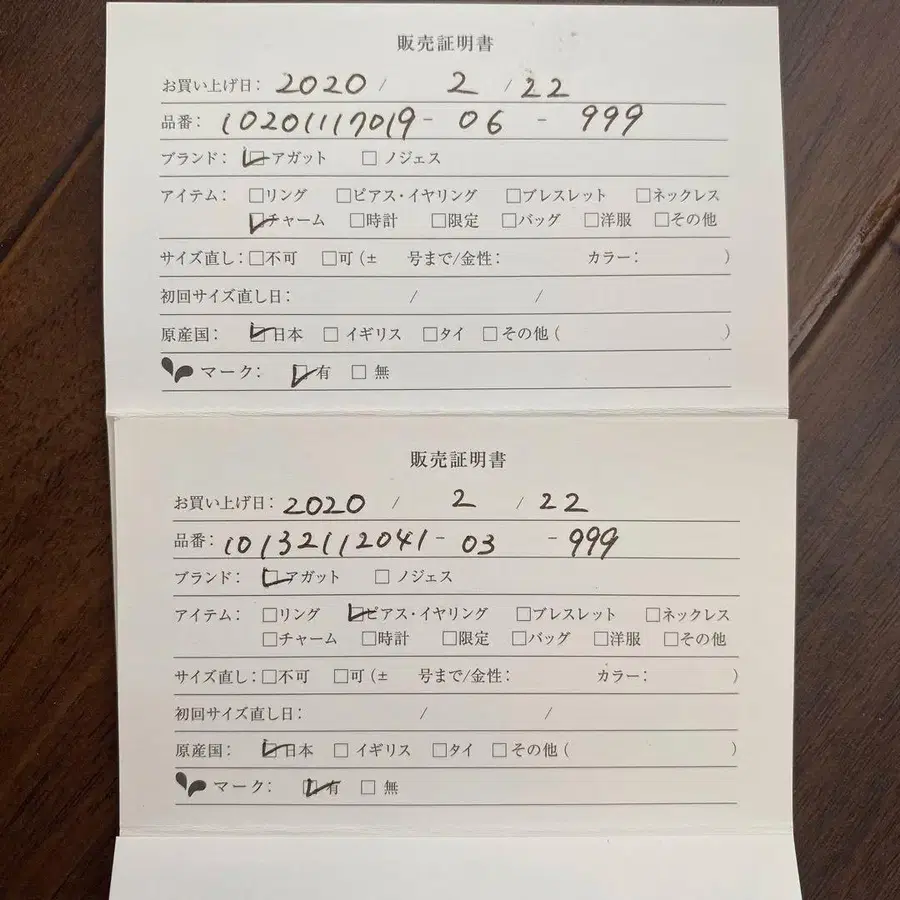 販売証明書
お買い上げ日: 2020 / 2 / 22
品番: 10201117019 - 06 - 999
ブランド: ☑アガット □ノジェス
アイテム: □リング □ピアス・イヤリング □ブレスレット □ネックレス
☑チャーム □時計 □限定 □バッグ □洋服 □その他
サイズ直し: □不可 □可(± 号まで/金性: カラー: )
初回サイズ直し日: / /
原産国: ☑日本 □イギリス □タイ □その他( )
マーク: ☑有 □無
販売証明書
お買い上げ日: 2020 / 2 / 22
品番: 10132112041 - 03 - 999
ブランド: ☑アガット □ノジェス
アイテム: □リング ☑ピアス・イヤリング □ブレスレット □ネックレス
□チャーム □時計 □限定 □バッグ □洋服 □その他
サイズ直し: □不可 □可(± 号まで/金性: カラー: )
初回サイズ直し日: / /
原産国: ☑日本 □イギリス □タイ □その他( )
マーク: ☑有 □無